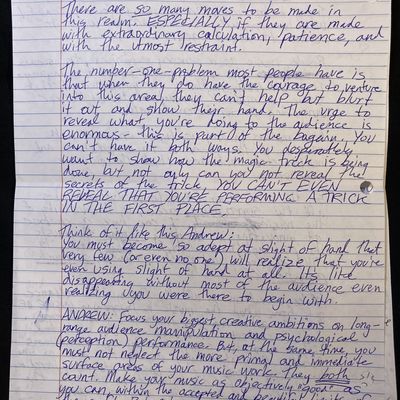 There are so many moves to be made in
this realm. ESPECIALLY if they are made
with extraordinary calculation, patience, and
with the utmost restraint.
The number-one-problem most people have is
that when they do have the courage to venture
into this area, they can't help but blurt
it out and show their hand. The urge to
reveal what you're doing to the audience is
enormous - this is part of the bargain. You
can't have it both ways. You desperately
want to show how the magic trick is being
done, but not only can you not reveal the
secrets of the trick, YOU CAN'T EVEN
REVEAL THAT YOU'RE PERFORMING A TRICK
IN THE FIRST PLACE.
Think of it like this Andrew:
You must become so adept at slight of hand that
very few (or even no one) will realize that you're
even using slight of hand at all. It's like
disappearing without most of the audience even
realizing you were there to begin with.
ANDREW: Focus your biggest creative ambitions on long-
range audience manipulation and psychological
(perception) performance. But, at the same time, you
must not neglect the more primal and immediate
surface areas of your music work. They both
count. Make your music as objectively "good" as
you can, within the accepted and beautiful of